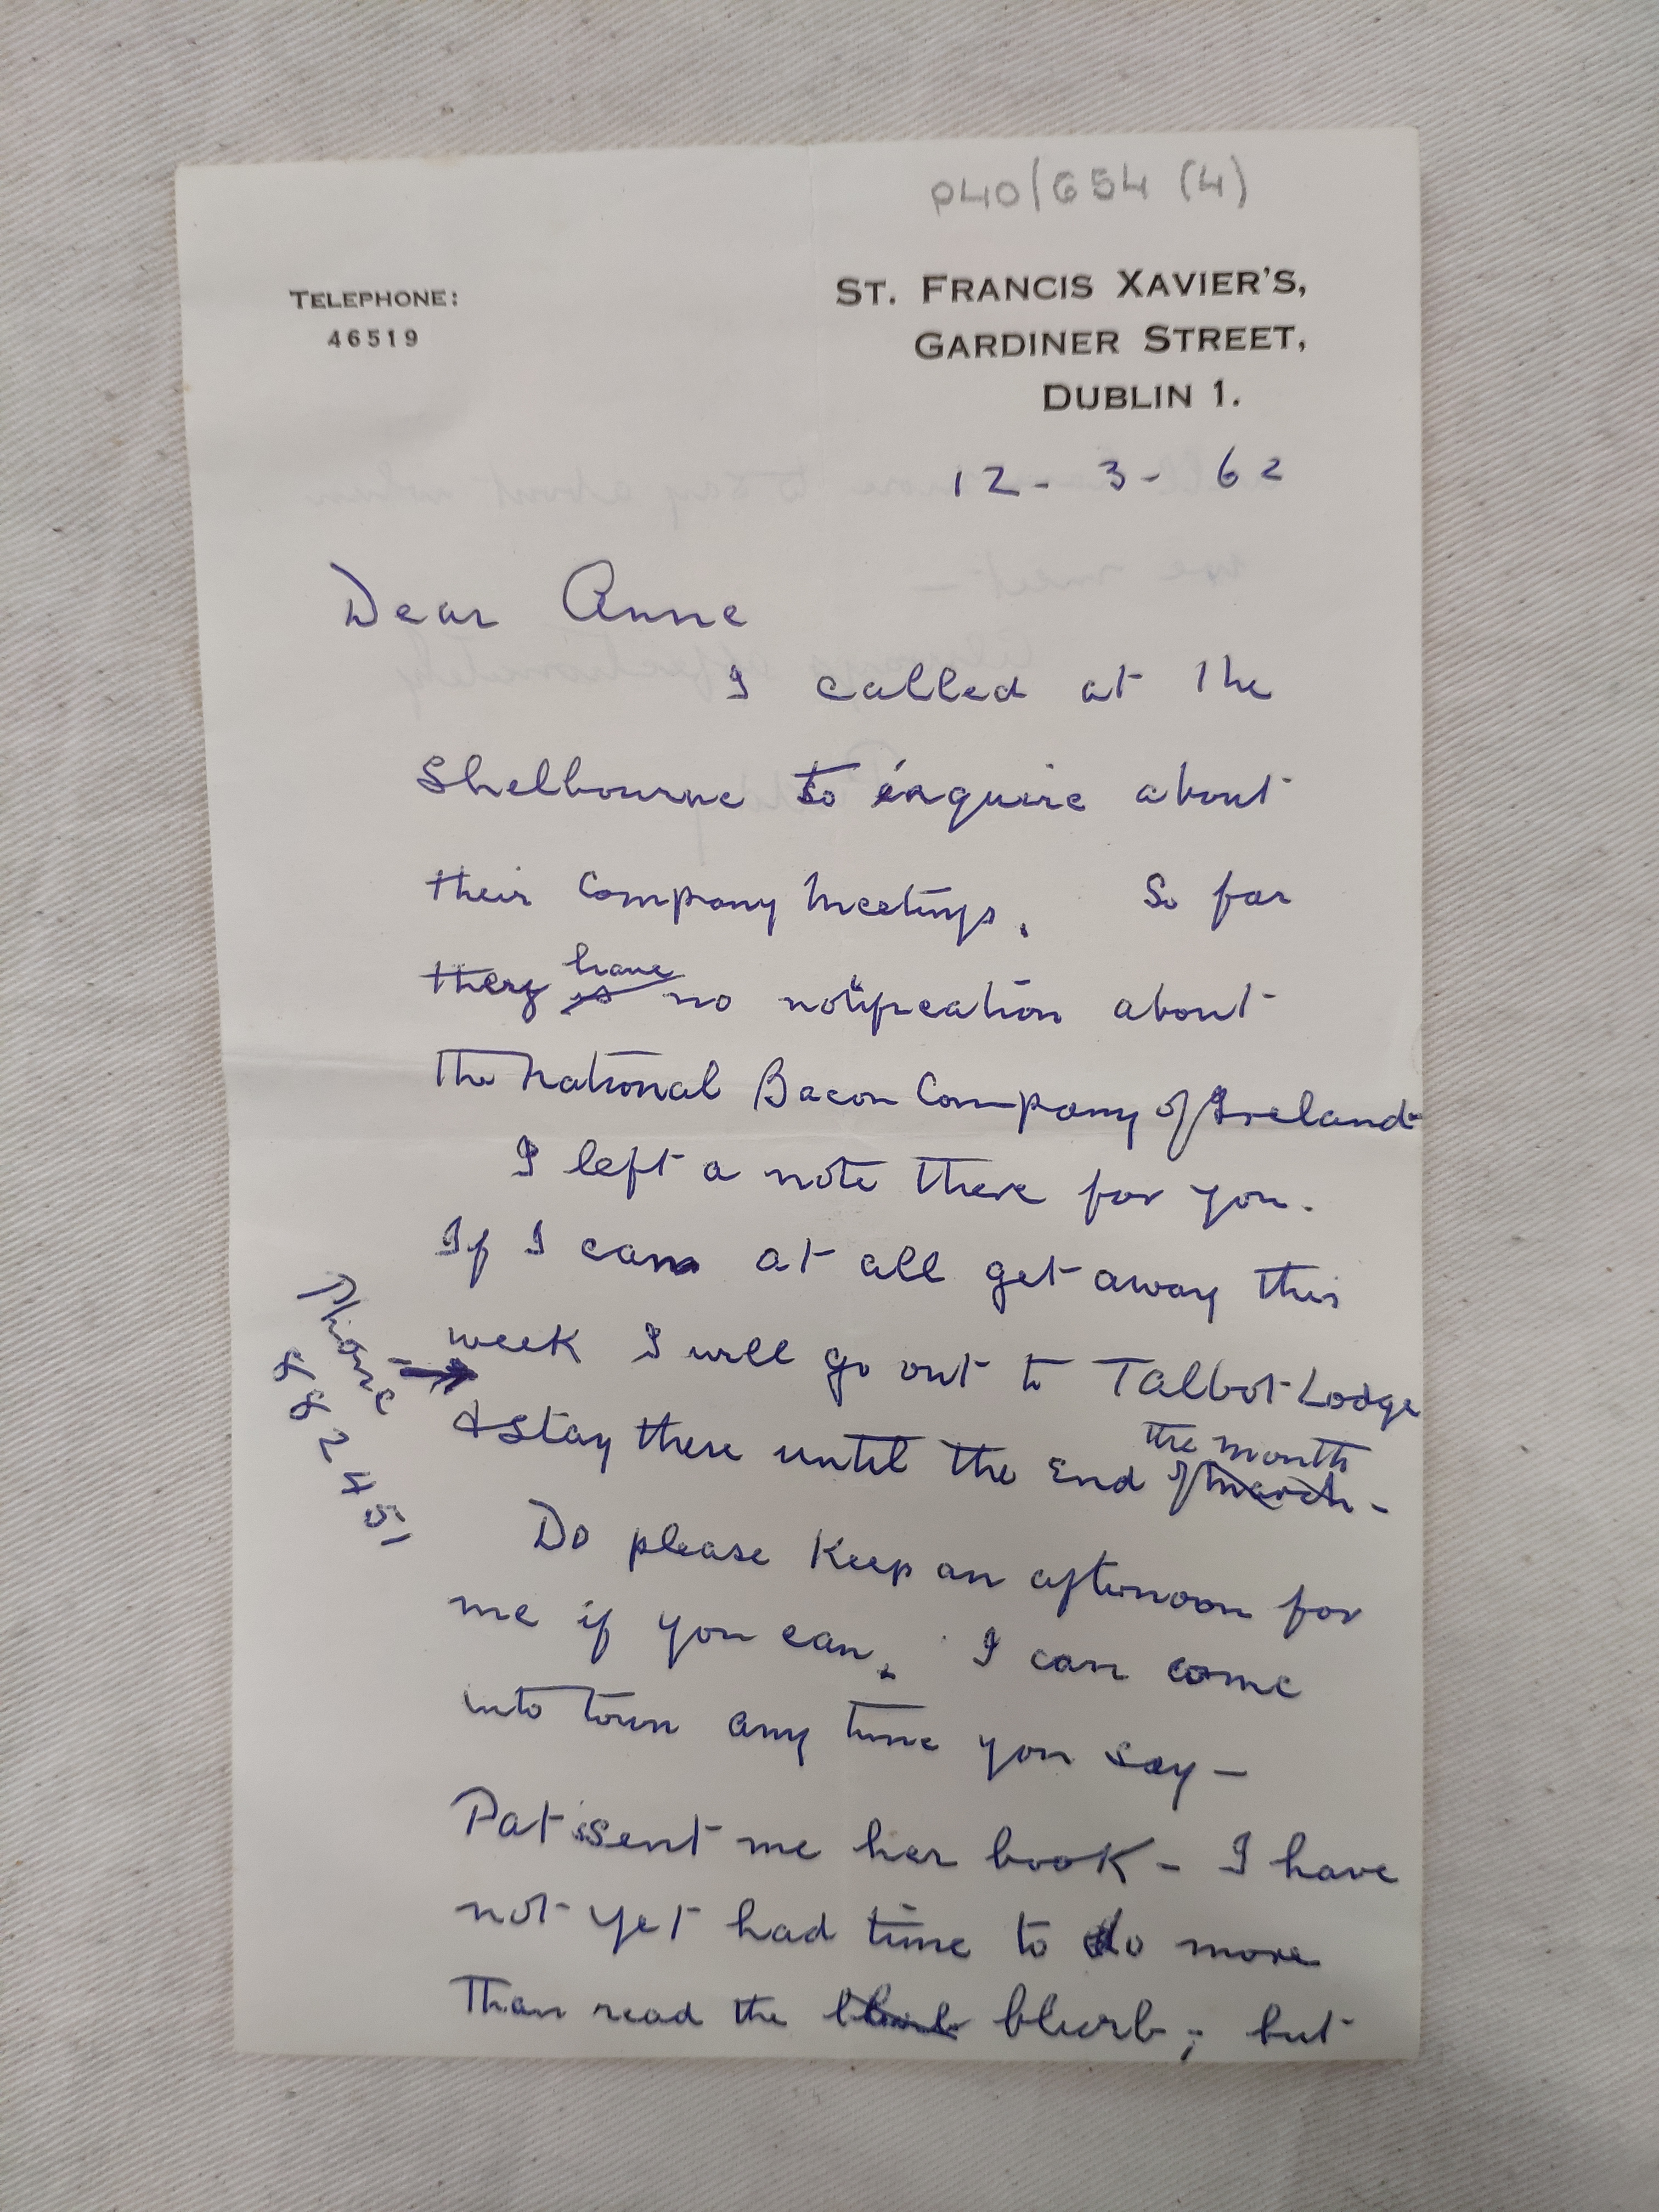 P40/654 (4)
TELEPHONE:
46519
ST. FRANCIS XAVIER'S,
GARDINER STREET,
DUBLIN 1.
12 - 3 - 62
Dear Anne
I called at the
Shelbourne to enquire about
their Company Meetings. So far
they have
is no notification about
the National Bacon Company of Ireland
I left a note there for you.
If I can at all get away this
week I will go out to Talbot Lodge
Phone
882451
& stay there until the end of the month
March -
Do please keep an afternoon for
me if you can. I can come
into town any time you say -
Pat sent me her book - I have
not yet had time to do more
than read the blurb; but